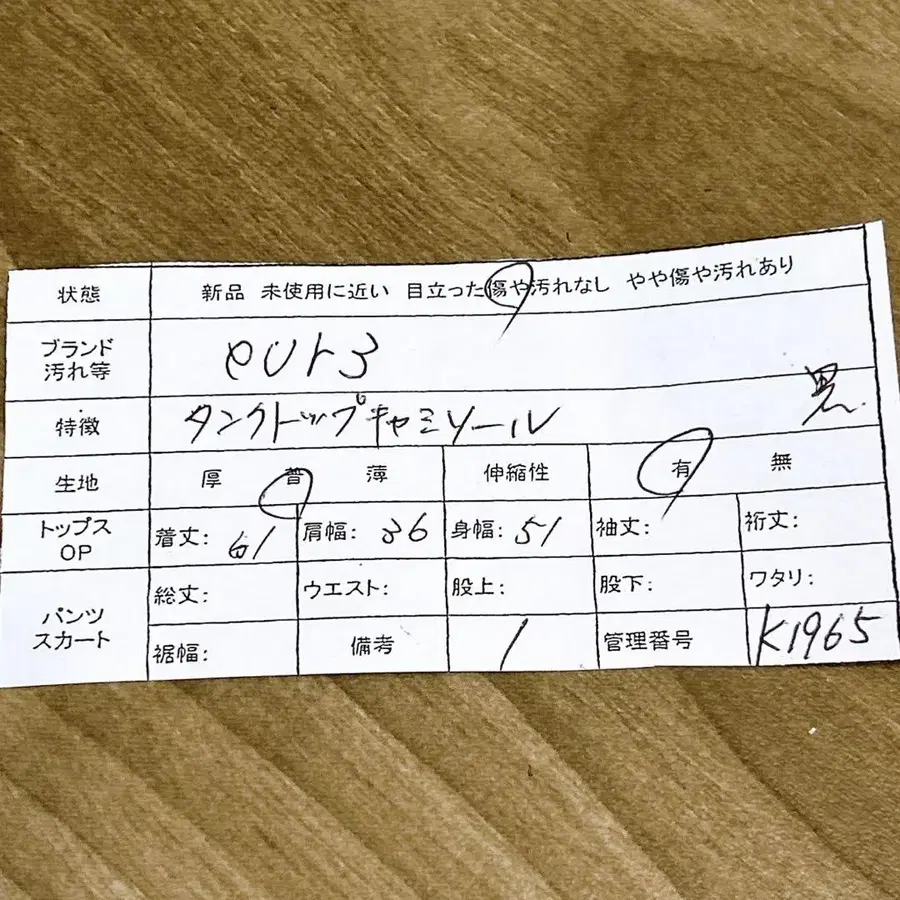 状態 新品 未使用に近い 目立った傷や汚れなし やや傷や汚れあり
ブランド
汚れ等 eur3
特徴 タンクトップキャミソール 黒
生地 厚 普 薄 伸縮性 有 無
トップス
OP 着丈: 61 肩幅: 36 身幅: 51 袖丈: 裄丈:
パンツ
スカート 総丈: ウエスト: 股上: 股下: ワタリ:
裾幅: 備考 1 管理番号 K1965